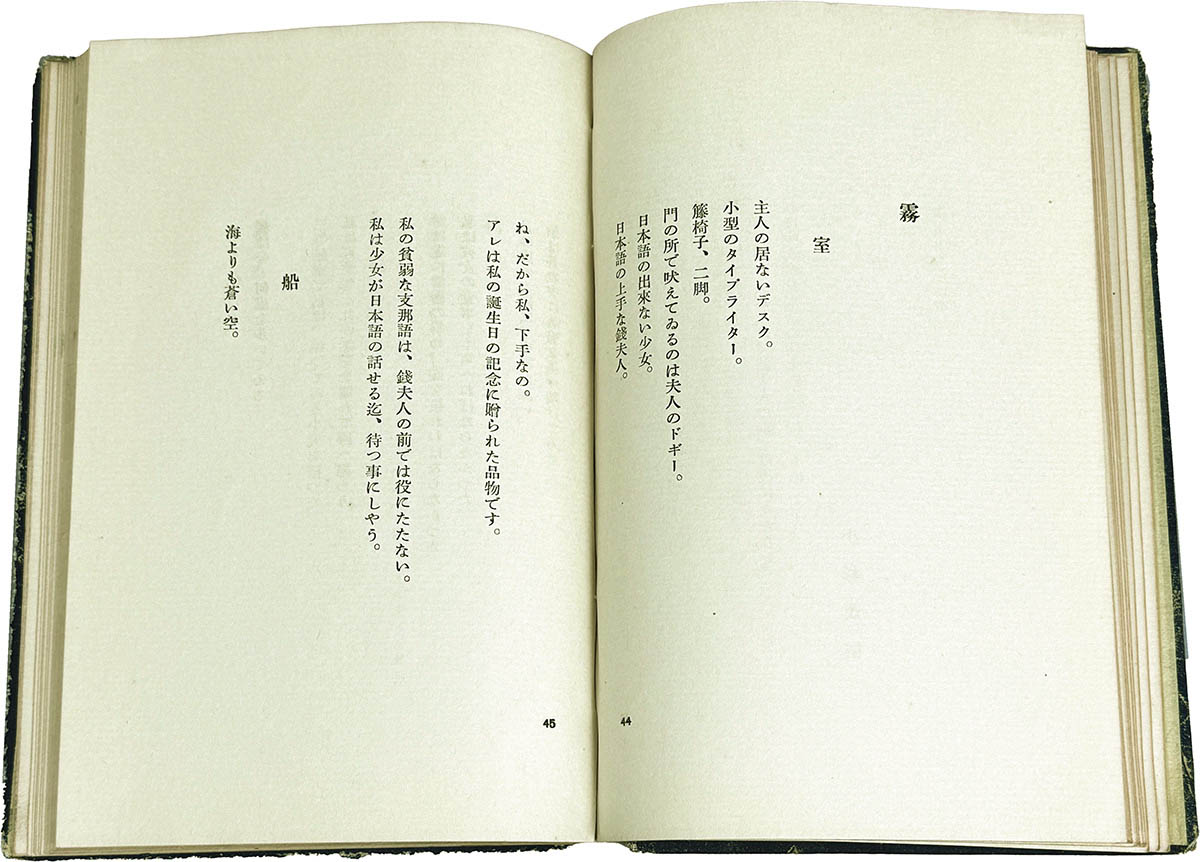 霧
室
主人の居ないデスク。
小型のタイプライター。
籐椅子、二脚。
門の所で吠えてゐるのは夫人のドギー。
日本語の出來ない少女。
日本語の上手な錢夫人。
44
ね、だから私、下手なの。
アレは私の誕生日の記念に贈られた品物です。
私の貧弱な支那語は、錢夫人の前では役にたたない。
私は少女が日本語の話せる迄、待つ事にしやう。
船
海よりも蒼い空。
45